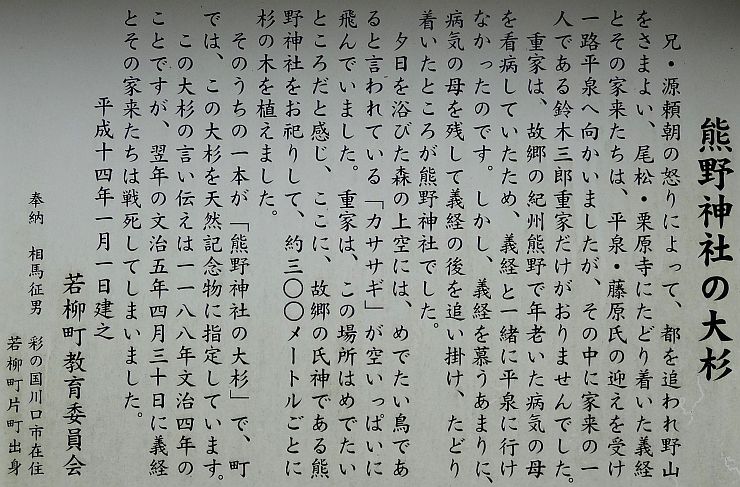 熊野神社の大杉
兄・源頼朝の怒りによって、都を追われ野山
をさまよい、尾松・栗原寺にたどり着いた義経
とその家来たちは、平泉・藤原氏の迎えを受け
一路平泉へ向かいましたが、その中に家来の一
人である鈴木三郎重家だけがおりませんでした。
重家は、故郷の紀州熊野で年老いた病気の母
を看病していたため、義経と一緒に平泉に行け
なかったのです。しかし、義経を慕うあまりに、
病気の母を残して義経の後を追い掛け、たどり
着いたところが熊野神社でした。
夕日を浴びた森の上空には、めでたい鳥であ
ると言われている「カササギ」が空いっぱいに
飛んでいました。重家は、この場所はめでたい
ところだと感じ、ここに、故郷の氏神である熊
野神社をお祀りして、約三〇〇メートルごとに
杉の木を植えました。
そのうちの一本が「熊野神社の大杉」で、町
では、この大杉を天然記念物に指定しています。
この大杉の言い伝えは一一八八年文治四年の
ことですが、翌年の文治五年四月三十日に義経
とその家来たちは戦死してしまいました。
平成十四年一月一日建之
若柳町教育委員会
奉納 相馬征男 彩の国川口市在住
若柳町片町出身